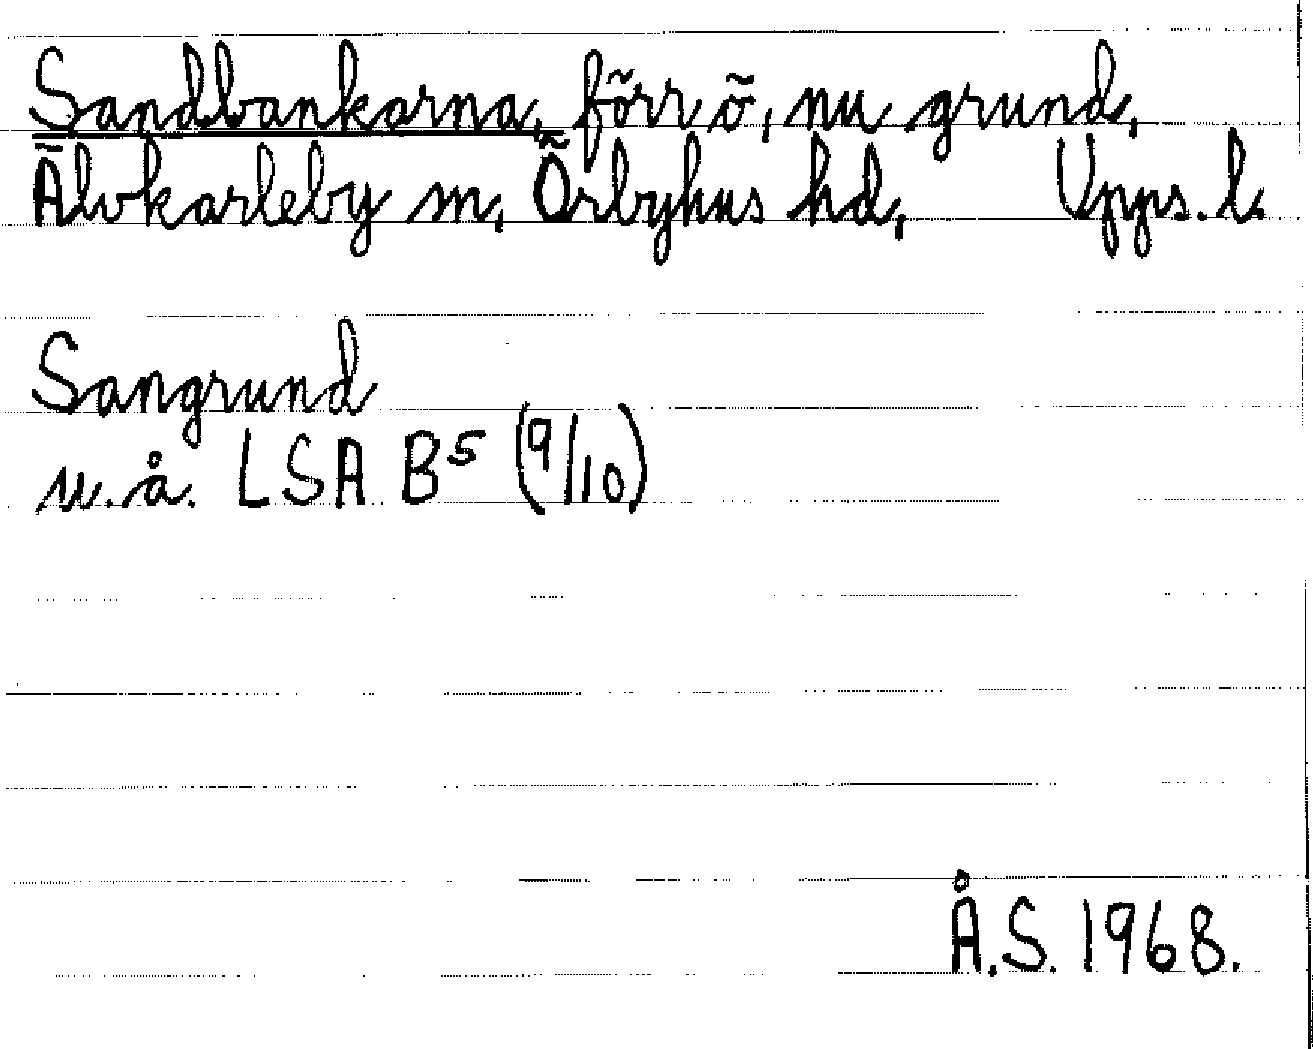 Sandbankarna, förr ö, nu grund,
Älvkarleby sn, Örbyhus hd, Upps. l.
Sangrund
u.å. LSA B5 (9/10)
Å.S. 1968.